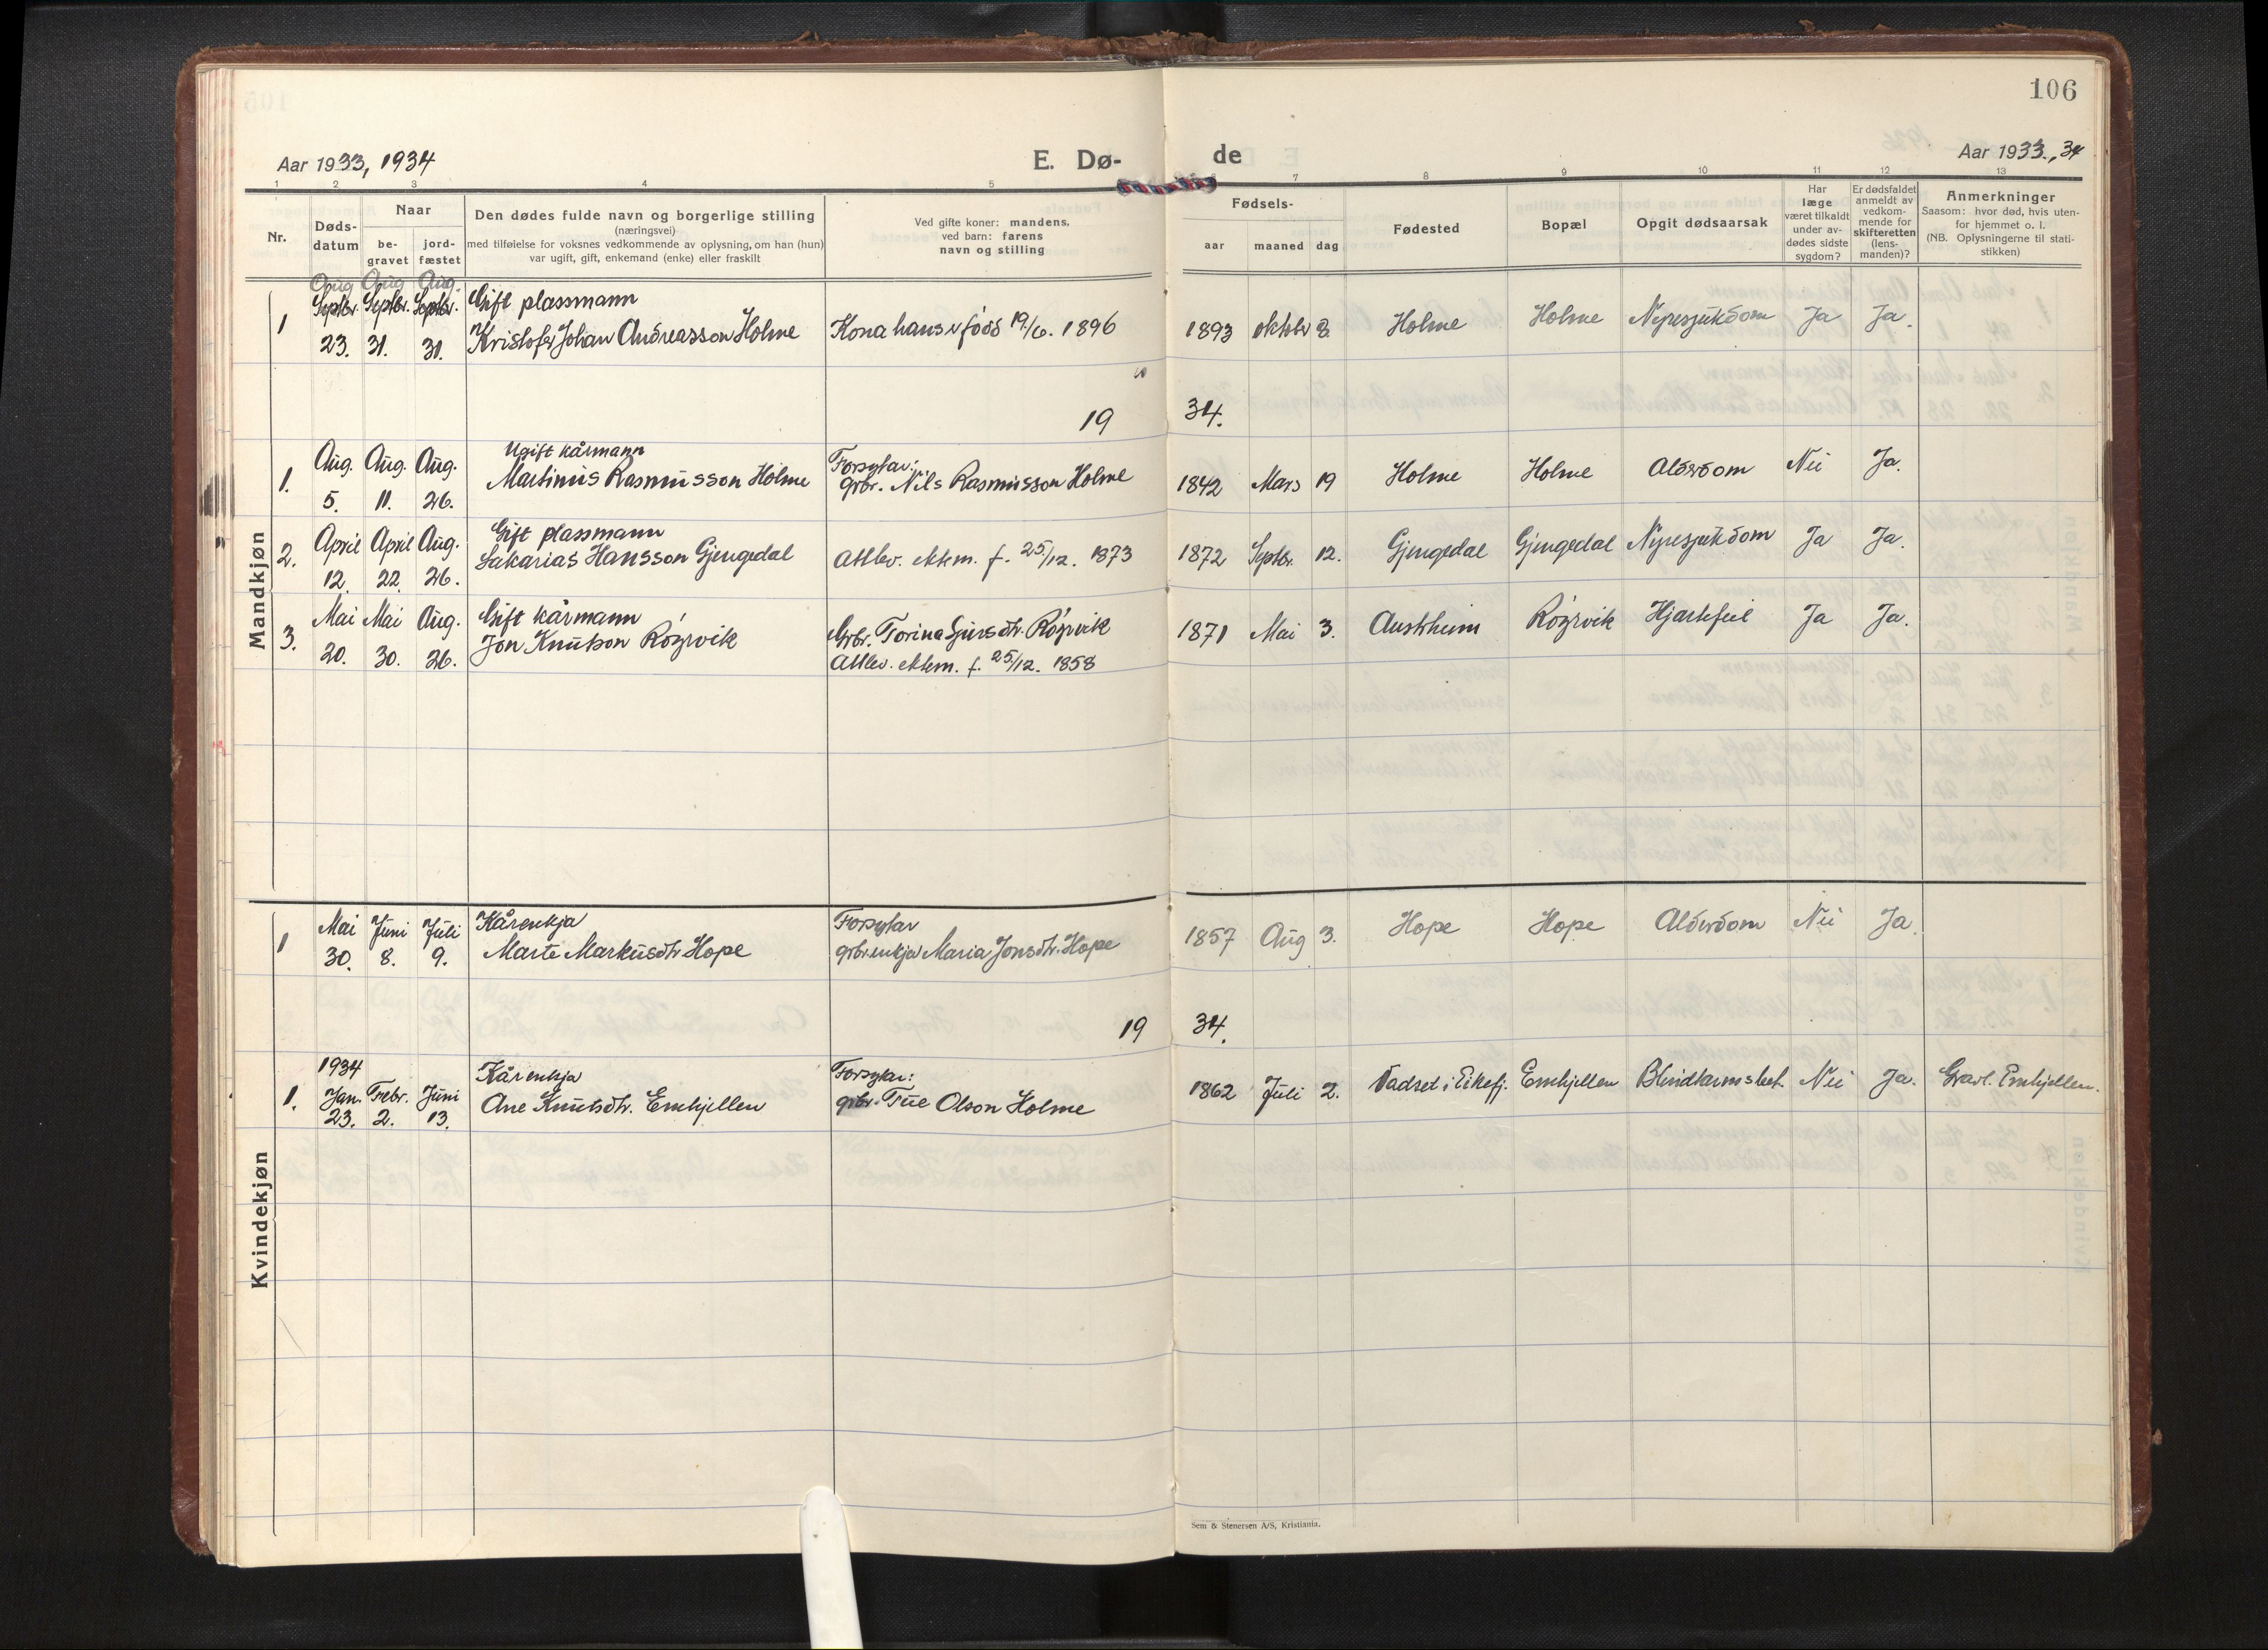 106
Aar 1933, 1934
E. Dø-
de
Aar 1933., 34
1 2 3 4 5 6 7 8 9 10 11 12 13
Nr.
Døds-
datum
Naar
be-
gravet
jord-
fæstet
Den dødes fulde navn og borgerlige stilling
(næringsvei)
med tilføielse for voksnes vedkommende av oplysning, om han (hun)
var ugift, gift, enkemand (enke) eller fraskilt
Ved gifte koner: mandens,
ved barn: farens
navn og stilling
Fødsels-
aar maaned dag
Fødested
Bopæl
Opgit dødsaarsak
Har
læge
været tilkaldt
under av-
dødes sidste
sygdom?
Er dødsfaldet
anmeldt av
vedkom-
mende for
skifteretten
(lens-
manden)?
Anmerkninger
Saasom: hvor død, hvis uten-
for hjemmet o. l.
(NB. Oplysningerne til stati-
stikken)
Mandkjøn
Aug Aug Aug.
Septbr. Septbr. Septbr. Gift plassmann
1 23. 31. 31. Kristofer Johan Andreasson Holme Kona hans er fødd 19/6. 1896 1893 oktobr 8. Holme Holme Nyresjukdom Ja Ja.
19 34.
Aug. Aug. Aug. Ugift kårmann Forsytar:
1. 5. 11. 26. Martinus Rasmusson Holme grbr. Nils Rasmusson Holme 1842 Mars 19 Holme Holme Alderdom Nei Ja.
April April Aug. Gift plassmann
2. 12. 22. 26. Sakarias Hansson Gjengedal Attlev. ektem. f. 25/12. 1873 1872 Septbr. 12. Gjengedal Gjengedal Nyresjukdom Ja Ja.
Mai Mai Aug. Gift kårmann Grbr. Torina Sjursdtr. Røyrvik
3. 20. 30. 26. Jon Knutson Røyrvik Attlev. ektem. f. 25/12. 1858 1871 Mai 3. Austrheim Røyrvik Hjartefeil Ja Ja.
Kvindekjøn
Mai Juni Juli Kårenkja Forsytar
1 30. 8. 9. Marte Markusdtr Hope grbr.enkja Maria Jonsdtr. Hope 1857 Aug 3. Hope Hope Alderdom Nei Ja.
19 34.
1934 Kårenkja Forsytar:
1. Jan. Febr. Juni Ane Knutsdtr. Emhjellen grbr. Tue Olson Holme 1862 Juli 2. Vadset i Eikefj. Emhjellen Blindtarmsbet. Nei Ja. Gravl. Emhjellen.
23. 2. 13.
Sem & Stenersen A/S, Kristiania.